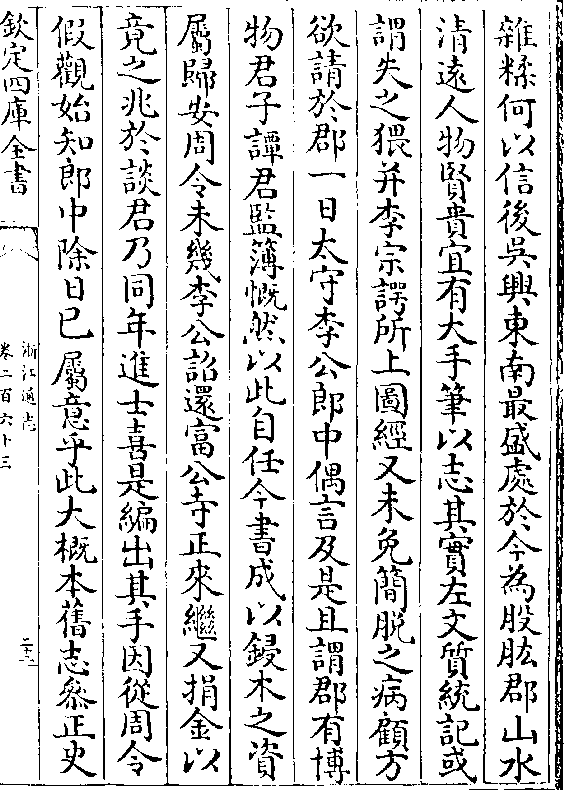 雜糅何以信後吳興東南最盛處於今為股肱郡山水
清遠人物賢貴宜有大手筆以志其實左文質統記或
謂失之猥并李宗諤所上圖經又未免簡脫之病顧方
欲請於郡一日太守李公郎中偶言及是且謂郡有博
物君子譚君監簿慨然以此自任今書成以鋟木之資
屬歸安周令未幾李公詔還富公寺正來繼又捐金以
竟之兆於談君乃同年進士喜是編出其手因從周令
假觀始知郎中除日已屬意乎此大概本舊志叅正史
欽定四庫全書
浙江通志
卷二百六十三